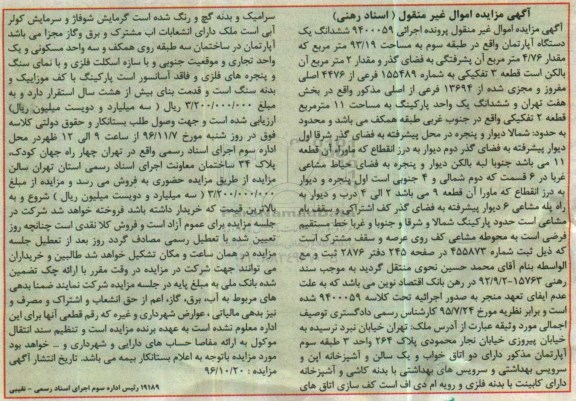 آگهی مزایده اموال غیر منقول ( اسناد رهنی)
آگهی مزایده اموال غیر منقول پرونده اجرائی ۹۴۰۰۰۵۹ ششدانگ یک
دستگاه آپارتمان واقع در طبقه سوم به مساحت ۹۳/۱۹ متر مربع که
مقدار ۴/۷۶ متر مربع آن پیشرفتگی به فضای گذر و مقدار ۲ متر مربع آن
بالکن است قطعه ۳ تفکیکی به شماره ۱۵۵۴۸۹ فرعی از ۴۴۷۶ اصلی
مفروز و مجزی شده از ۱۳۶۹۴ فرعی از اصلی مذکور واقع در بخش
هفت تهران و ششدانگ یک واحد پارکینگ به مساحت ۱۱ مترمربع
قطعه ۲ تفکیکی واقع در جنوب غربی طبقه همکف می باشد و محدود
به حدود: شمالا دیوار و پنجره در محل پیشرفته به فضای گذر شرقا اول
دیوار پیشرفته به فضای گذر دوم دیوار به درز انقطاع که ماورای آن قطعه
۱۱ می باشد جنوبا لبه بالکن دیوار و پنجره به فضای حیاط مشاعی
غربا در ۶ قسمت که دوم شمالی و ۴ جنوبی است اول پنجره و دیوار
به درز انقطاع که ماورا آن قطعه ۹ می باشد ۲ الی ۴ درب و دیوار به
راه پله مشاعی ۶ دیوار پیشرفته به فضای گذر کف اشتراکی و سقف
مشاعی است حدود پارکینگ شمالا و شرقا و جنوبا و غربا خط مستقیم
فرضی است به محوطه مشاعی کف روی عرصه و سقف مشترک است
که ذیل ثبت شماره ۴۵۵۸۷۳ در صفحه ۲۴۵ دفتر ۲۸۷۶ ثبت و مع
الواسطه بنام آقای محمد حسین نحوی منتقل گردید به موجب سند
رهنی ۱۵۷۶۳-۹۲/۹/۲ در رهن بانک اقتصاد نوین می باشد که به علت
عدم ایفای تعهد منجر به صدور اجرائیه تحت کلاسه ۹۴۰۰۰۵۹ شده
است و برابر نظریه مورخ ۹۵/۷/۲۴ کارشناس رسمی دادگستری توصیف
اجمالی مورد وثیقه عبارت از آدرس ملک: تهران خیابان نبرد نرسیده به
خیابان پیروزی خیابان نجار محمودی پلاک ۲۶۴ واحد ۳ طبقه سوم
آپارتمان مذکور دارای دو اتاق خواب و یک سالن و آشپزخانه اپن و
سرویس بهداشتی و سرویس های بهداشتی با بدنه کاشی و آشپزخانه
دارای کابینت با بدنه فلزی و رویه ام دی اف است کف سازی اتاق های
سرامیک و بدنه گچ و رنگ شده است گرمایش شوفاژ و سرمایش کولر
آبی است ملک دارای انشعابات اب مشترک و برق وگاز مجزا می باشد
آپارتمان در ساختمان سه طبقه روی همکف و سه واحد مسکونی و یک
واحد تجاری و موقعیت جنوبی و با سازه اسکلت فلزی و با نمای سنگ
و پنجره های فلزی و فاقد آسانسور است پارکینگ با کف موزاییک و
بدنه سنگ است و قدمت بنای بیش از هشت سال استقرار دارد و به
مبلغ ۳/۲۰۰/۰۰۰/۰۰۰ ریال ( سه میلیارد و دویست میلیون ریال)
ارزیابی شده است و جهت وصول طلب بستانکار و حقوق دولتی کلاسه
فوق در روز شنبه مورخ ۹۶/۱۱/۷ از ساعت ۹ الی ۱۲ ظهردر محل
اداره سوم اجرای اسناد رسمی واقع در تهران چهار راه جهان کودک،
پلاک ۳۴ ساختمان معاونت اجرای اسناد رسمی استان تهران سالن
مزایده از طریق مزایده حضوری به فروش می رسد و مزایده از مبلغ
۳/۲۰۰/۰۰۰/۰۰۰ ( سه میلیارد و دویست میلیون ریال ) شروع و به
بالاترین قیمت که خریدار داشته باشد فروخته خواهد شد شرکت در
جلسه مزایده برای عموم آزاد است و فروش کلا نقدی است چنانچه روز
تعیین شده با تعطیل رسمی مصادف گردد روز بعد از تعطیل جلسه
مزایده در همان ساعت و مکان تشکیل خواهد شد طالبین و خریداران
می توانند جهت شرکت در مزایده در وقت مقرر با ارائه چک تضمین
شده بانک ملی به مبلغ پایه در جلسه مزایده شرکت نمایند ضمنا بدهی
های مربوط به آب، برق، گاز، اعم از حق انشعاب و اشتراک و مصرف و
نیز بدهی مالیاتی ، عوارض شهرداری و غیره که رقم قطعی آنها برای این
اداره معلوم نشده است به عهده برنده مزایده است و تنظیم سند انتقال
موکول به ارائه مفاصا حساب های دارایی و شهرداری و ... خواهد بود
مورد مزایده باتوجه به اعلام بستانکار بیمه می باشد. تاریخ انتشار آگهی
مزایده : ۹۶/۱۰/۲۰
۱۹۱۸۹ رئیس اداره سوم اجرای اسناد رسمی - نقیبی